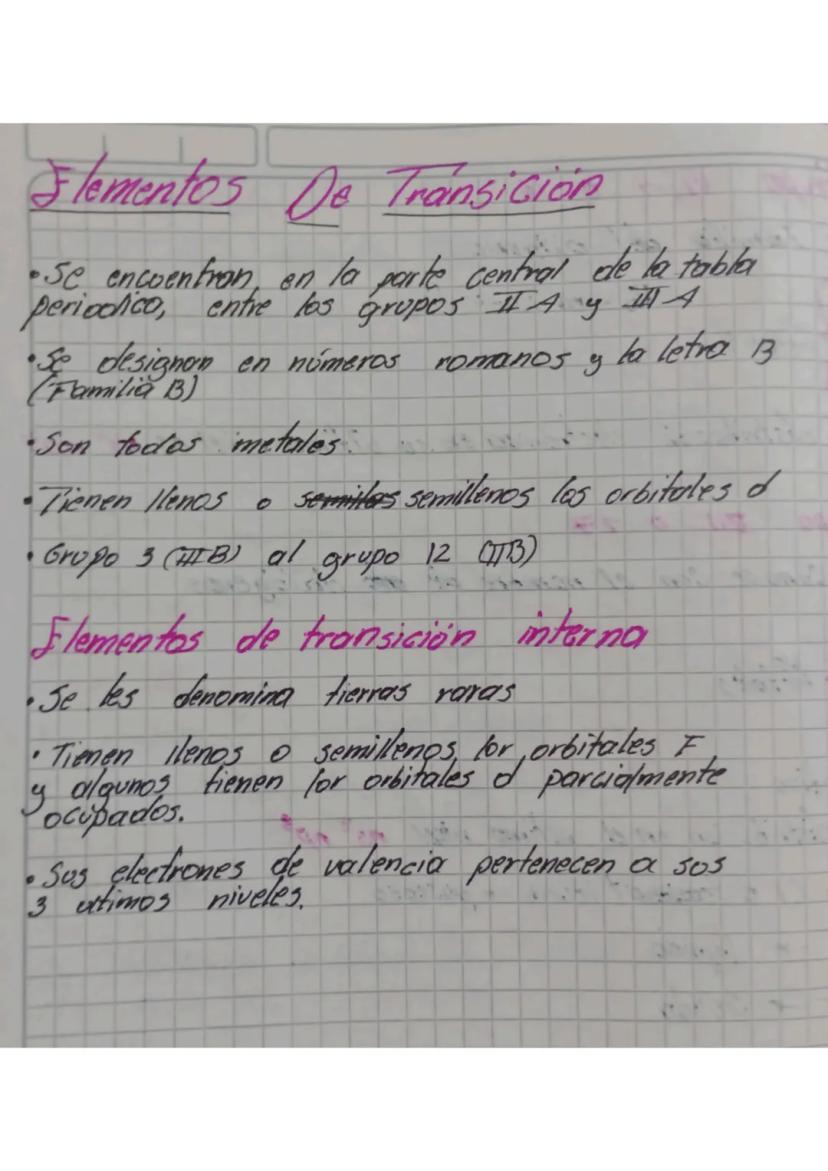 Elementos De Transición
• Se encuentran en la parte central de la tabla
periodica, entre los grupos II A y III A
• Se designan en números romanos y la letra B
(Familia B)
• Son todos metales.
• Tienen llenos o semillos semillenos los orbitales d
• Grupo 3 (III B) al grupo 12 (IIB)
Elementos de transición interna
• Se les denomina tierras raras
• Tienen llenos o semillenos lor orbitales F
y algunos tienen lor orbitales d parcialmente
ocupados.
• Sus electrones de valencia pertenecen a sus
3 ultimos niveles.